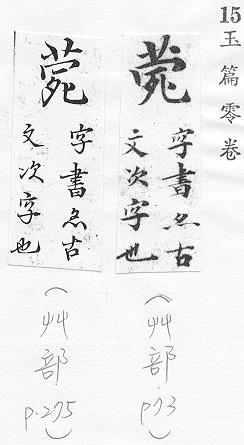 15
玉篇零卷
字書亦古
文次字也
(艸部 p.73)
字書亦古
文次字也
(艸部 p.275)